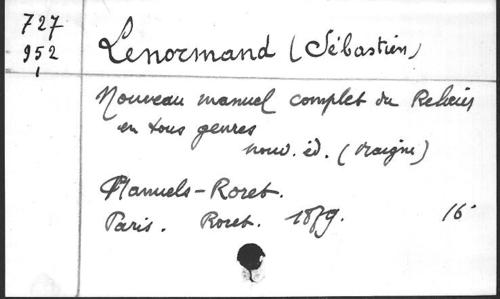 727
952
Lenormand (Sébastien)
Nouveau manuel complet du Relieur
en tous genres
nouv. éd. (Maigne)
Manuels-Roret.
Paris. Roret. 1879. 16°